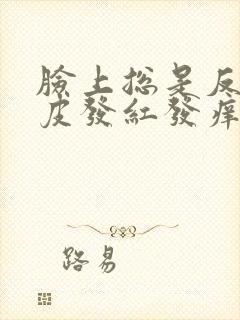 臉上總是反
皮發紅發痒
路易